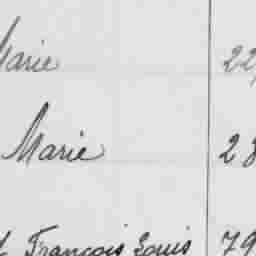 Marie 22
Marie 28
François Louis 79